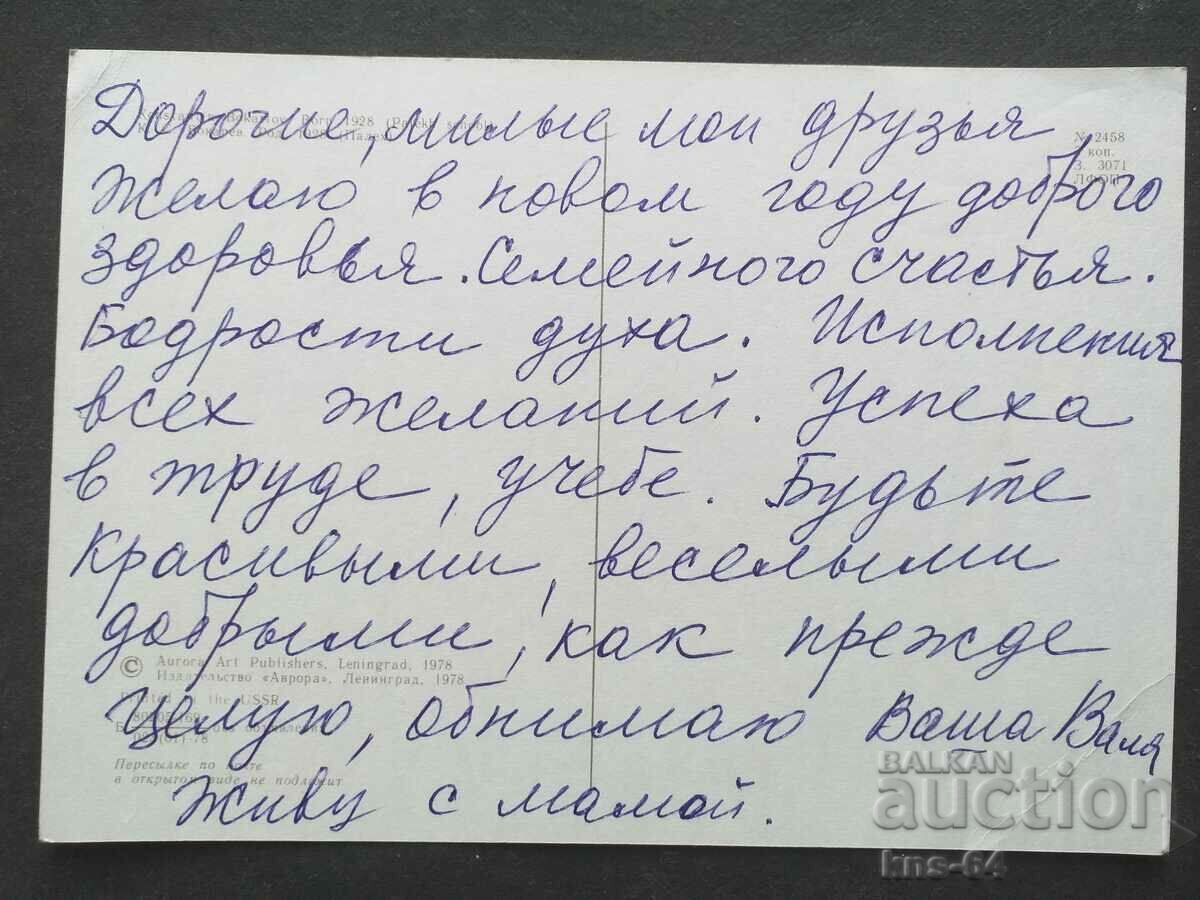 Дорогие, милые мои друзья
Желаю в новом году доброго
здоровья. Семейного счастья.
Бодрости духа. Исполнения
всех желаний. Успеха
в труде, учебе. Будьте
красивыми, веселыми
добрыми, как прежде
Целую, обнимаю Ваша Валя
Живу с мамой.
Born 1928
№ 2458
коп.
З. 3071
© Aurora Art Publishers, Leningrad, 1978
Издательство «Аврора», Ленинград, 1978
Printed in the USSR
Пересылке по почте
в открытом виде не подлежит
BALKAN
auction
kns-64